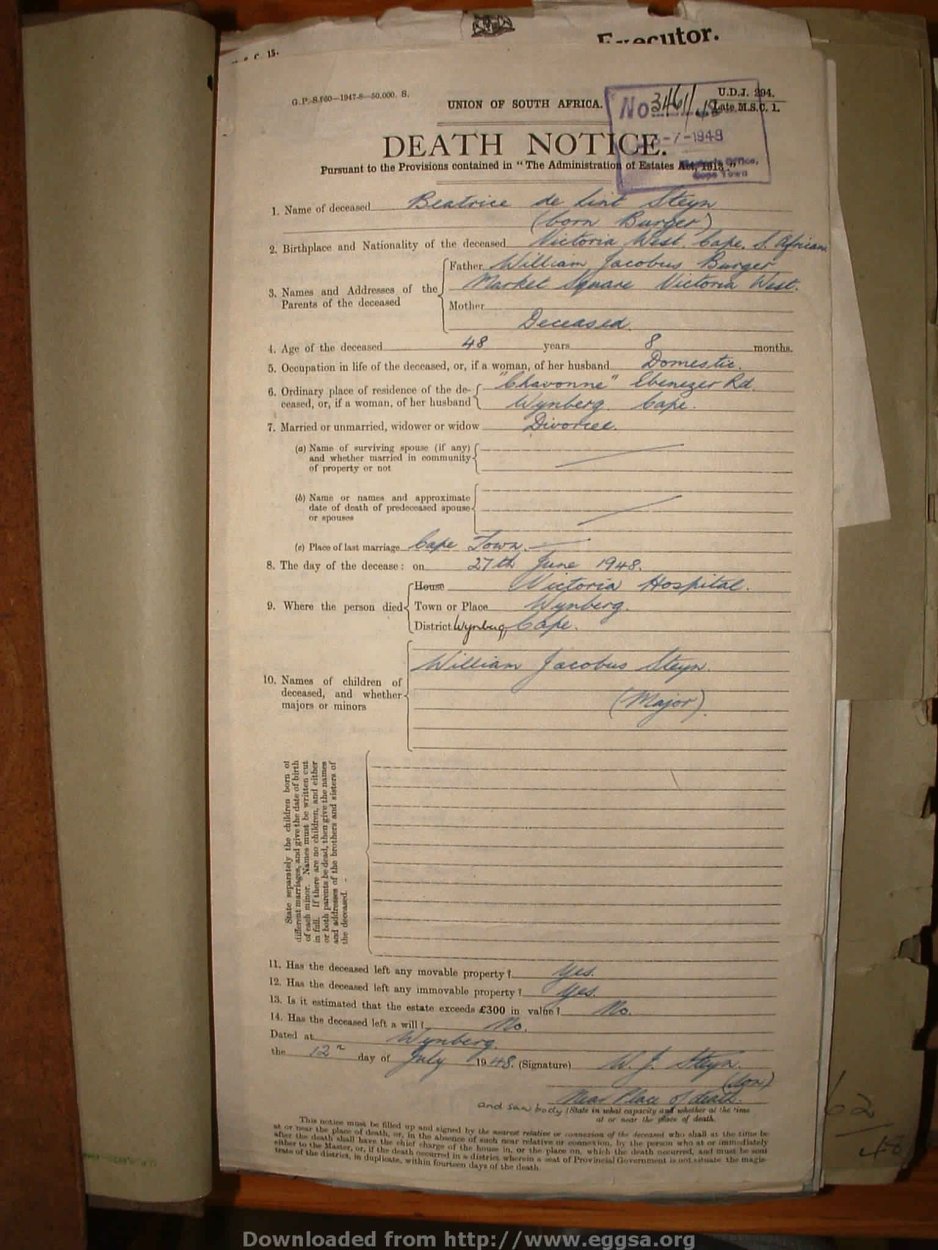 Executor.
G.P.-S.
1947-8—50,000. S.
UNION OF SOUTH AFRICA.
U.D.J. 294.
Late M.S.C. 1.
No 3461/48
-7-1948
Master's Office,
Cape Town
DEATH NOTICE.
Pursuant to the Provisions contained in "The Administration of Estates Act, 1913."
1. Name of deceased Beatrice de Lint Steyn
(born Burger)
2. Birthplace and Nationality of the deceased Victoria West, Cape, S. African
3. Names and Addresses of the Parents of the deceased
Father William Jacobus Burger
Market Square Victoria West.
Mother
Deceased.
4. Age of the deceased 48 years 8 months.
5. Occupation in life of the deceased, or, if a woman, of her husband Domestic.
6. Ordinary place of residence of the de- "Chavonne" Ebenezer Rd.
ceased, or, if a woman, of her husband Wynberg. Cape.
7. Married or unmarried, widower or widow Divorcee.
(a) Name of surviving spouse (if any)
and whether married in community
of property or not
(b) Name or names and approximate
date of death of predeceased spouse
or spouses
(c) Place of last marriage Cape Town.
8. The day of the decease: on 27th June 1948.
9. Where the person died
House Victoria Hospital.
Town or Place Wynberg.
District Wynberg Cape.
William Jacobus Steyn.
10. Names of children of
deceased, and whether
majors or minors
(Major).
State separately the children born of
different marriages, and give the date of birth
of each minor. Names must be written out
in full. If there are no children, and either
or both parents be dead, then give the names
and addresses of the brothers and sisters of
the deceased.
11. Has the deceased left any movable property? Yes.
12. Has the deceased left any immovable property? Yes.
13. Is it estimated that the estate exceeds £300 in value? No.
14. Has the deceased left a will? No.
Dated at Wynberg.
the 12th day of July 1948. (Signature) W. J. Steyn.
(Son)
Near Place of death.
and saw body (State in what capacity and whether at the time
at or near the place of death.
This notice must be filled up and signed by the nearest relative or connexion of the deceased who shall at the time be
at or near the place of death, or, in the absence of such near relative or connexion, by the person who at or immediately
after the death shall have the chief charge of the house in, or the place on, which the death occurred, and must be sent
either to the Master, or, if the death occurred in a district wherein a seat of Provincial Government is not situate the magis-
trate of the district, in duplicate, within fourteen days of the death.
62
48
Downloaded from http://www.eggsa.org